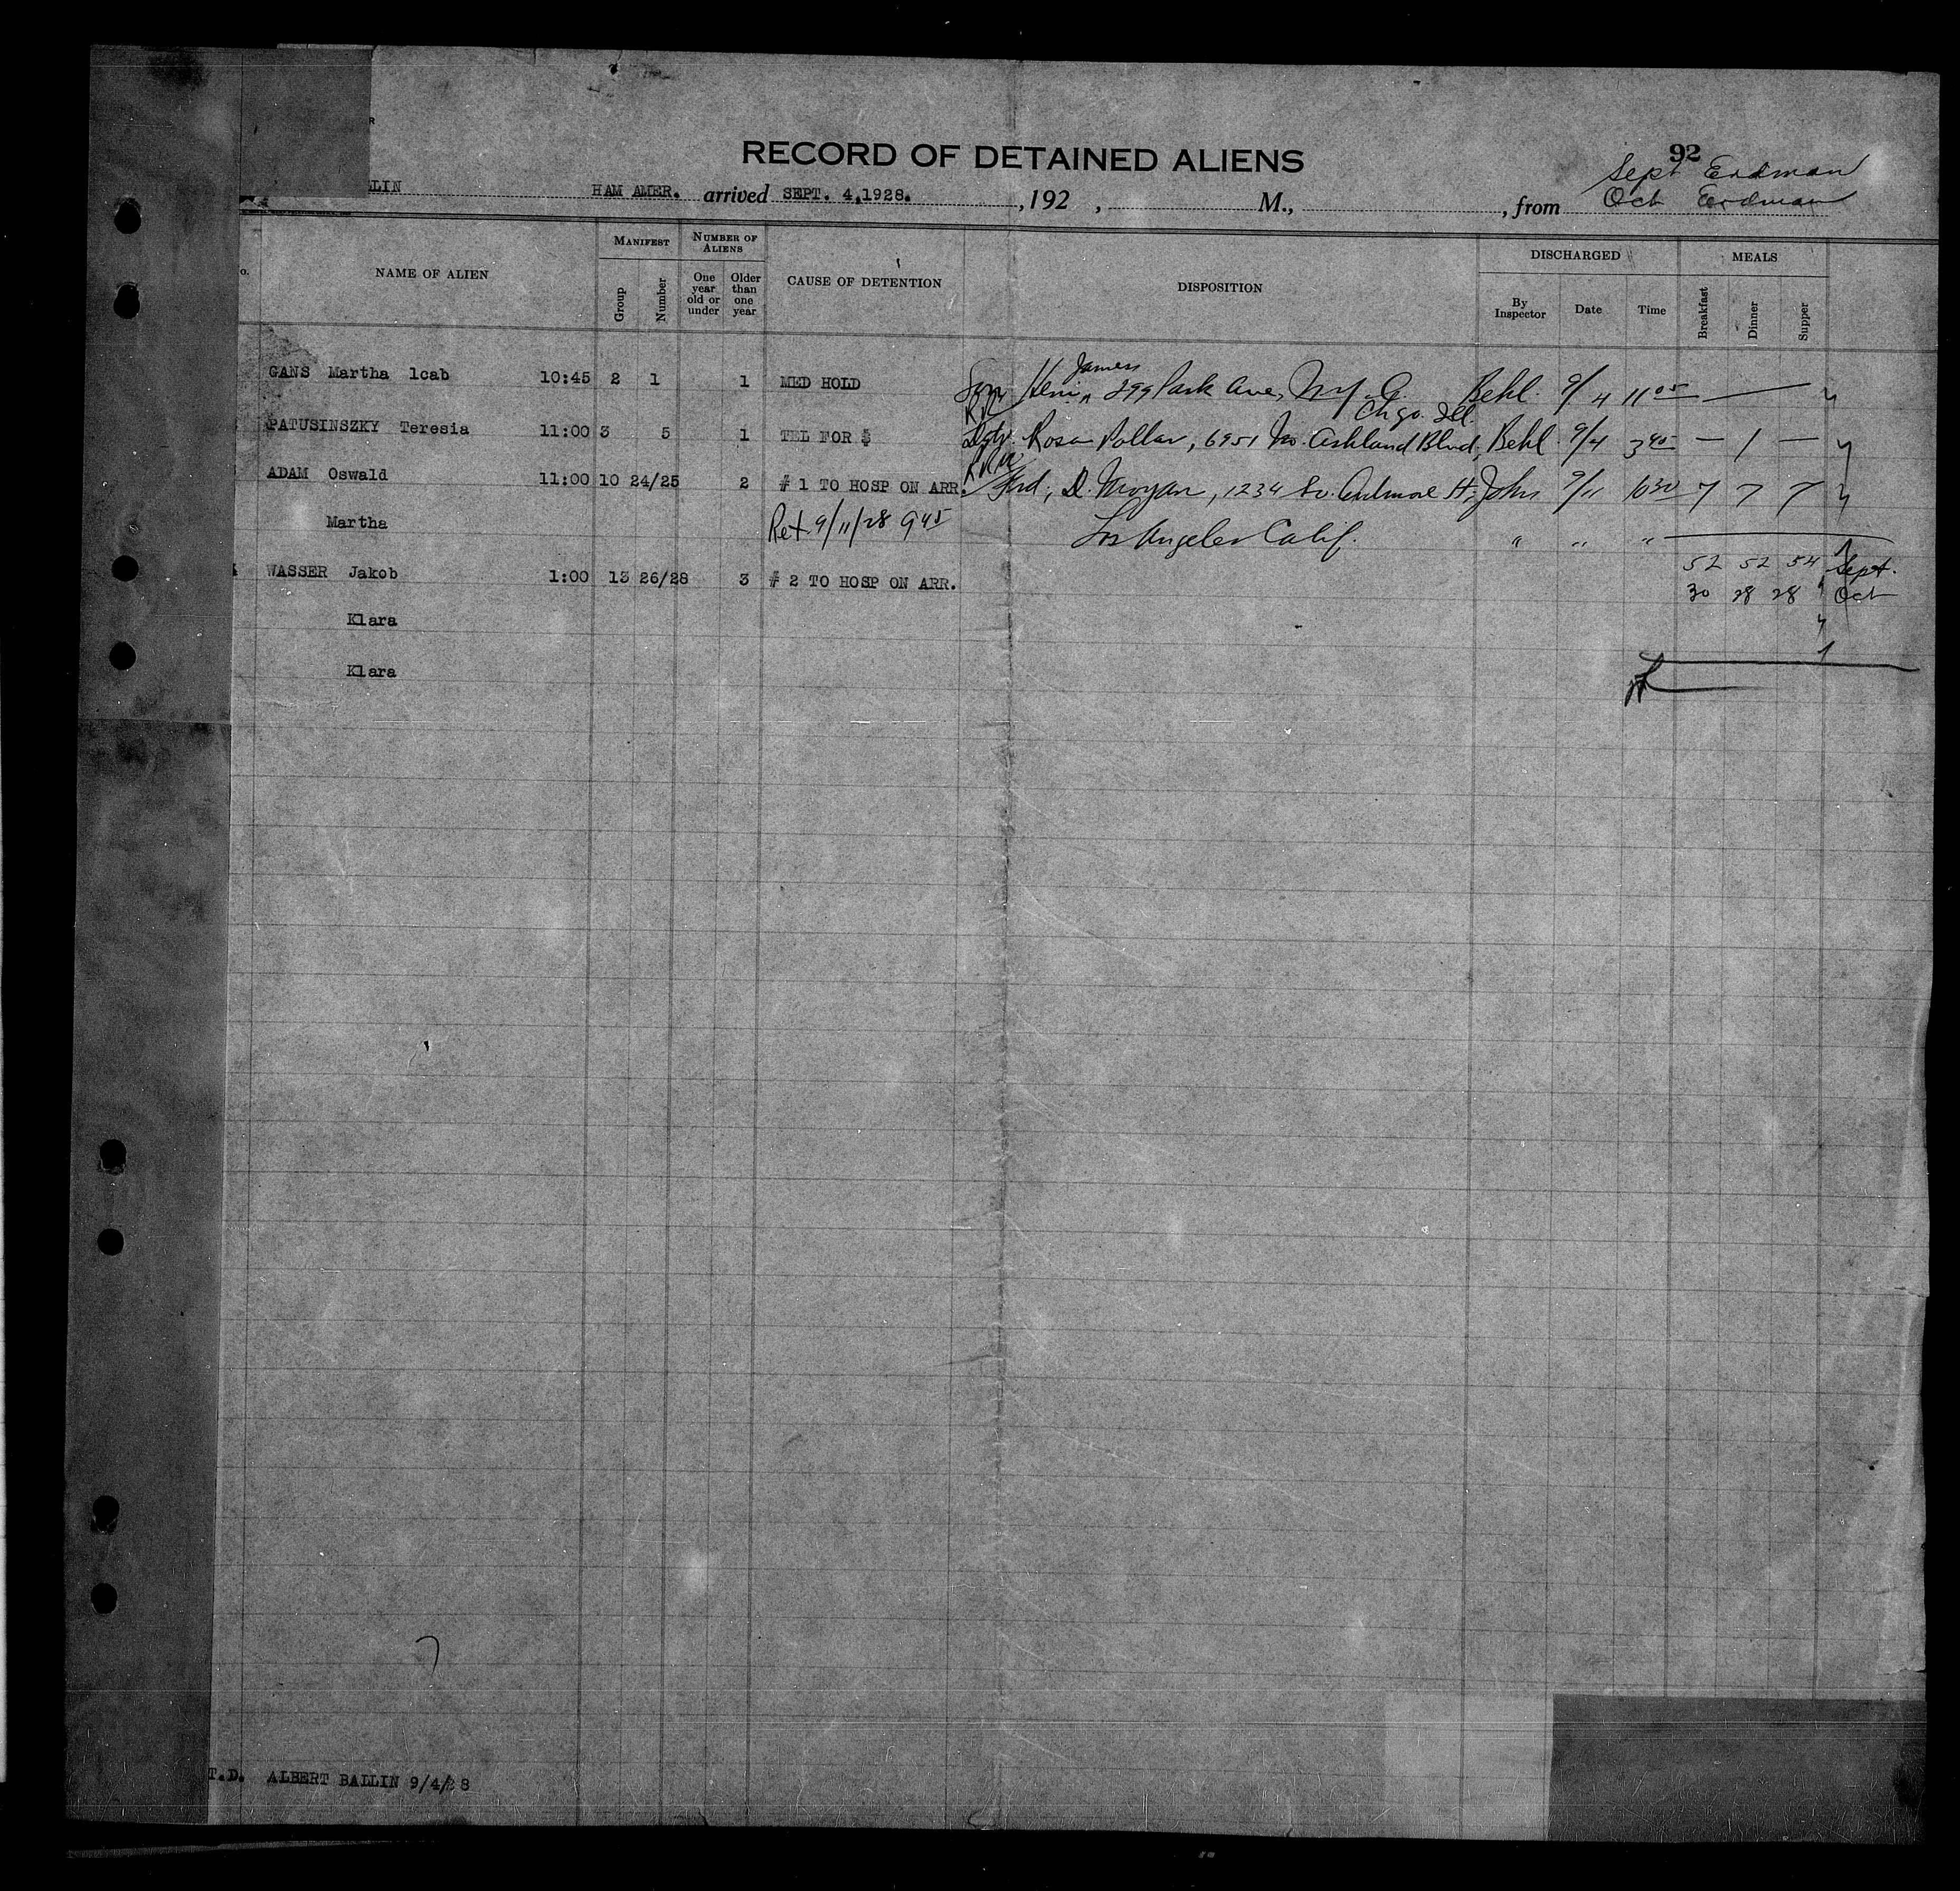 RECORD OF DETAINED ALIENS
92
Sept Erdman
LLIN HAM AMER. arrived SEPT. 4,1928. , 192 , M., , from Oct Erdman
o. NAME OF ALIEN MANIFEST Group Number NUMBER OF ALIENS One year old or under Older than one year CAUSE OF DETENTION DISPOSITION DISCHARGED By Inspector Date Time MEALS Breakfast Dinner Supper
GANS Martha 1cab 10:45 2 1 1 MED HOLD Son James 299 Park Ave, N.Y.C. Behl. 9/4 11 05 —
PATUSINSZKY Teresia 11:00 3 5 1 TEL FOR $ Dgtr. Rosa Pollar, 6951 No. Ashland Blvd, Chgo. Ill. Behl 9/4 3 40 — 1 —
ADAM Oswald 11:00 10 24/25 2 # 1 TO HOSP ON ARR. Frd, D. Morgan, 1234 So. Ardmore St, John 9/11 10 30 7 7 7
Martha Ret 9/11/28 9 45 Los Angeles Calif. " " "
WASSER Jakob 1:00 13 26/28 3 # 2 TO HOSP ON ARR. 52 52 54 Sept.
30 28 28 Oct
Klara
Klara
T.D. ALBERT BALLIN 9/4/28